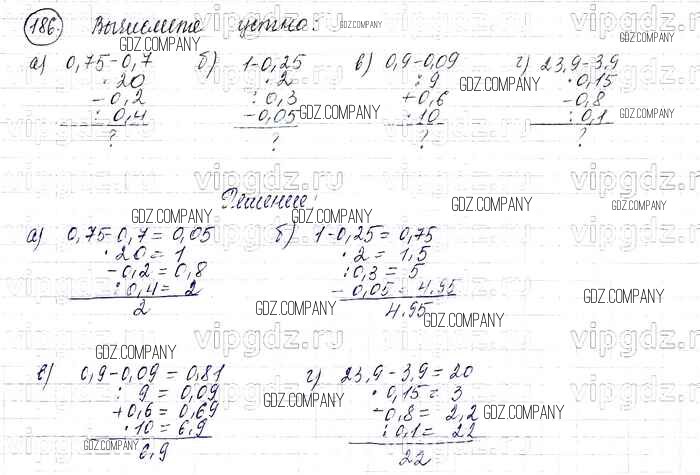 186. Вычислите устно:
а) 0,75-0,7 б) 1-0,25 в) 0,9-0,09 г) 23,9-3,9
·20 ·2 :9 ·0,15
-0,2 :0,3 +0,6 -0,8
:0,4 -0,05 ·10 :0,1
? ? ? ?
Решение:
а) 0,75-0,7=0,05 б) 1-0,25=0,75
·20=1 ·2=1,5
-0,2=0,8 :0,3=5
:0,4=2 -0,05=4.95
2 4.95
в) 0,9-0,09=0,81 г) 23,9-3,9=20
:9=0,09 ·0,15=3
+0,6=0,69 -0,8=2,2
·10=6,9 :0,1=22
6,9 22
GDZ.COMPANY
vipgdz.ru